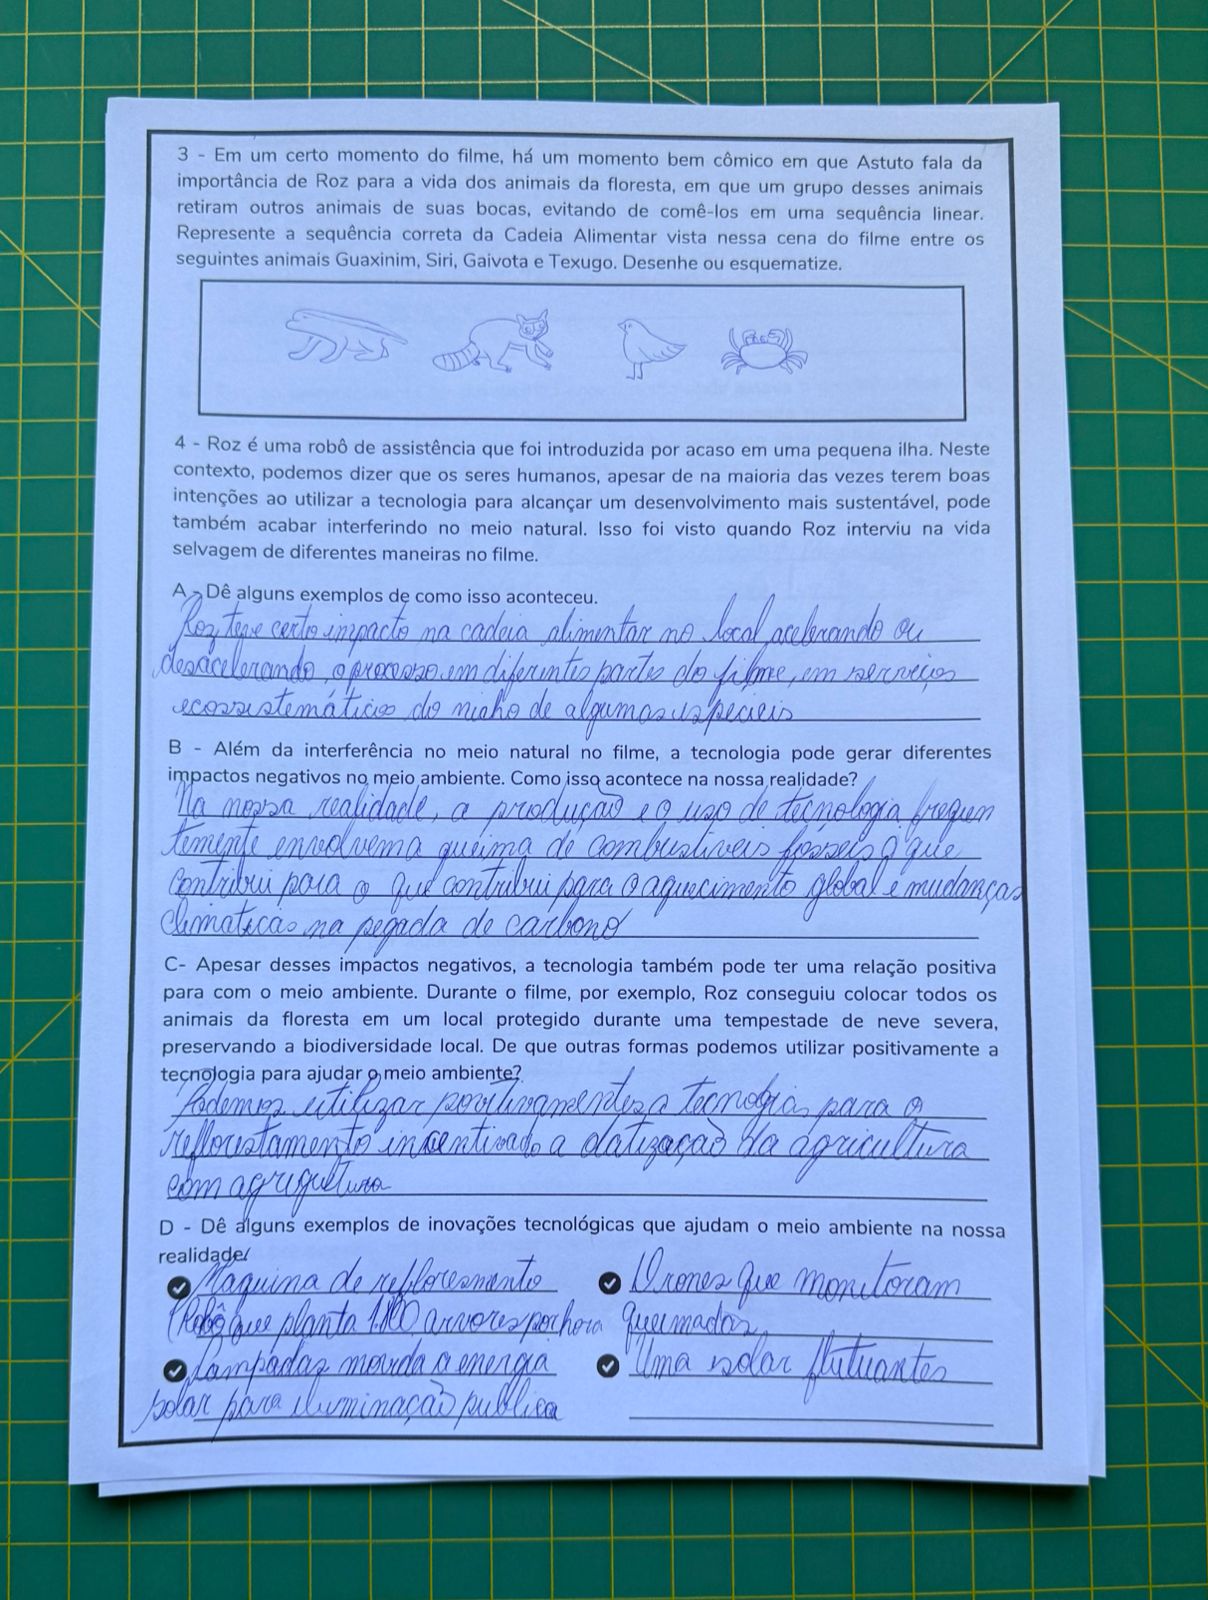 3 - Em um certo momento do filme, há um momento bem cômico em que Astuto fala da
importância de Roz para a vida dos animais da floresta, em que um grupo desses animais
retiram outros animais de suas bocas, evitando de comê-los em uma sequência linear.
Represente a sequência correta da Cadeia Alimentar vista nessa cena do filme entre os
seguintes animais Guaxinim, Siri, Gaivota e Texugo. Desenhe ou esquematize.
4 - Roz é uma robô de assistência que foi introduzida por acaso em uma pequena ilha. Neste
contexto, podemos dizer que os seres humanos, apesar de na maioria das vezes terem boas
intenções ao utilizar a tecnologia para alcançar um desenvolvimento mais sustentável, pode
também acabar interferindo no meio natural. Isso foi visto quando Roz interviu na vida
selvagem de diferentes maneiras no filme.
A - Dê alguns exemplos de como isso aconteceu.
Roz teve certo impacto na cadeia alimentar no local acelerando ou
desacelerando, o processo em diferentes partes do filme, em serviços
ecossistemáticos do nicho de algumas especieis
B - Além da interferência no meio natural no filme, a tecnologia pode gerar diferentes
impactos negativos no meio ambiente. Como isso acontece na nossa realidade?
Na nossa realidade, a produção e o uso de tecnologia frequen
temente envolvem a queima de combustiveis fósseis o que
contribui para o que contribui para o aquecimento global e mudanças
climaticas na pegada de carbono
C- Apesar desses impactos negativos, a tecnologia também pode ter uma relação positiva
para com o meio ambiente. Durante o filme, por exemplo, Roz conseguiu colocar todos os
animais da floresta em um local protegido durante uma tempestade de neve severa,
preservando a biodiversidade local. De que outras formas podemos utilizar positivamente a
tecnologia para ajudar o meio ambiente?
Podemos utilizar a para o
reflorestamento a da agricultura
com
D - Dê alguns exemplos de inovações tecnológicas que ajudam o meio ambiente na nossa
realidade
Maquina de
(Robô que planta arvores por hora
Drones que monitoram
queimadas
Lampadas a energia
solar para iluminação publica
Uma solar flutuantes